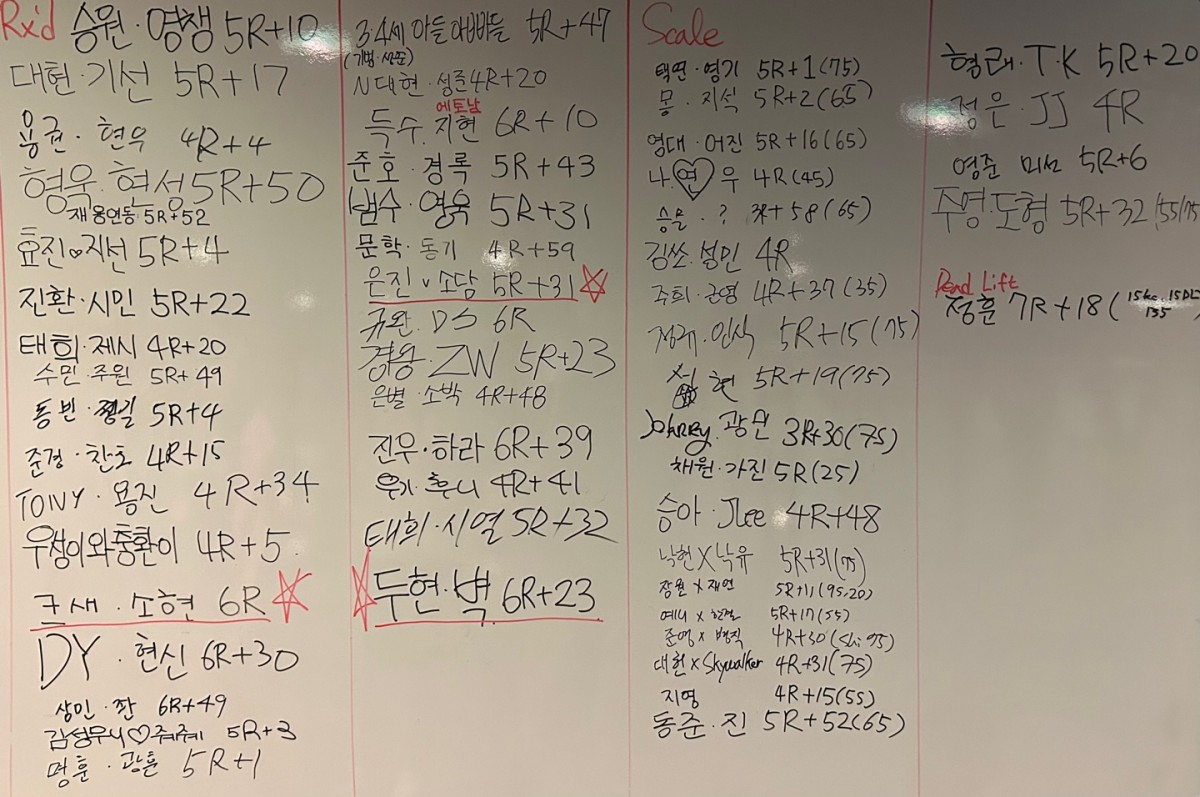 Rx'd 승원·영쟁 5R+10
대현·기선 5R+17
용권·현우 4R+4
형욱·현성 5R+50
재용연동 5R+52
효진♡지선 5R+4
진환·시민 5R+22
태희·제시 4R+20
수민·주원 5R+49
동빈· 5R+4
준경·찬호 4R+15
TONY·용진 4R+34
우상이와충환이 4R+5
쿤새·소현 6R
DY·현신 6R+30
상민·짠 6R+49
김성우니♡줴줴 5R+3
명훈·광훈 5R+1
3·4세 아들아빠들 5R+47
(기범·상준)
N대현·성준 4R+20
에토남
득수·지현 6R+10
준호·경록 5R+43
범수·영욱 5R+31
문학·동기 4R+59
은진 v 소담 5R+31
규완·DS 6R
경용·ZW 5R+23
은별·소박 4R+48
진우·하라 6R+39
우기·후니 4R+41
태희·시열 5R+32
두현·벽 6R+23
Scale
택연·영기 5R+1(75)
몽·지식 5R+2(65)
영대·어진 5R+16(65)
나연♡우 4R(45)
승율·? 3R+58(65)
김쏘·성민 4R
주희·근영 4R+37(35)
정규·인식 5R+15(75)
현 5R+19(75)
Johnny·광민 3R+30(75)
채원·가진 5R(25)
승아·JLee 4R+48
낙현X낙유 5R+31(75)
장원x재연 5R+11(95,20)
예니x 5R+17(55)
준영x병직 4R+30(95)
대헌xSkywalker 4R+31(75)
지영 4R+15(55)
동준·진 5R+52(65)
형래·T·K 5R+20
정은·JJ 4R
영준 미선 5R+6
주영·도형 5R+32(55/75
Dead Lift
정훈 7R+18(
155